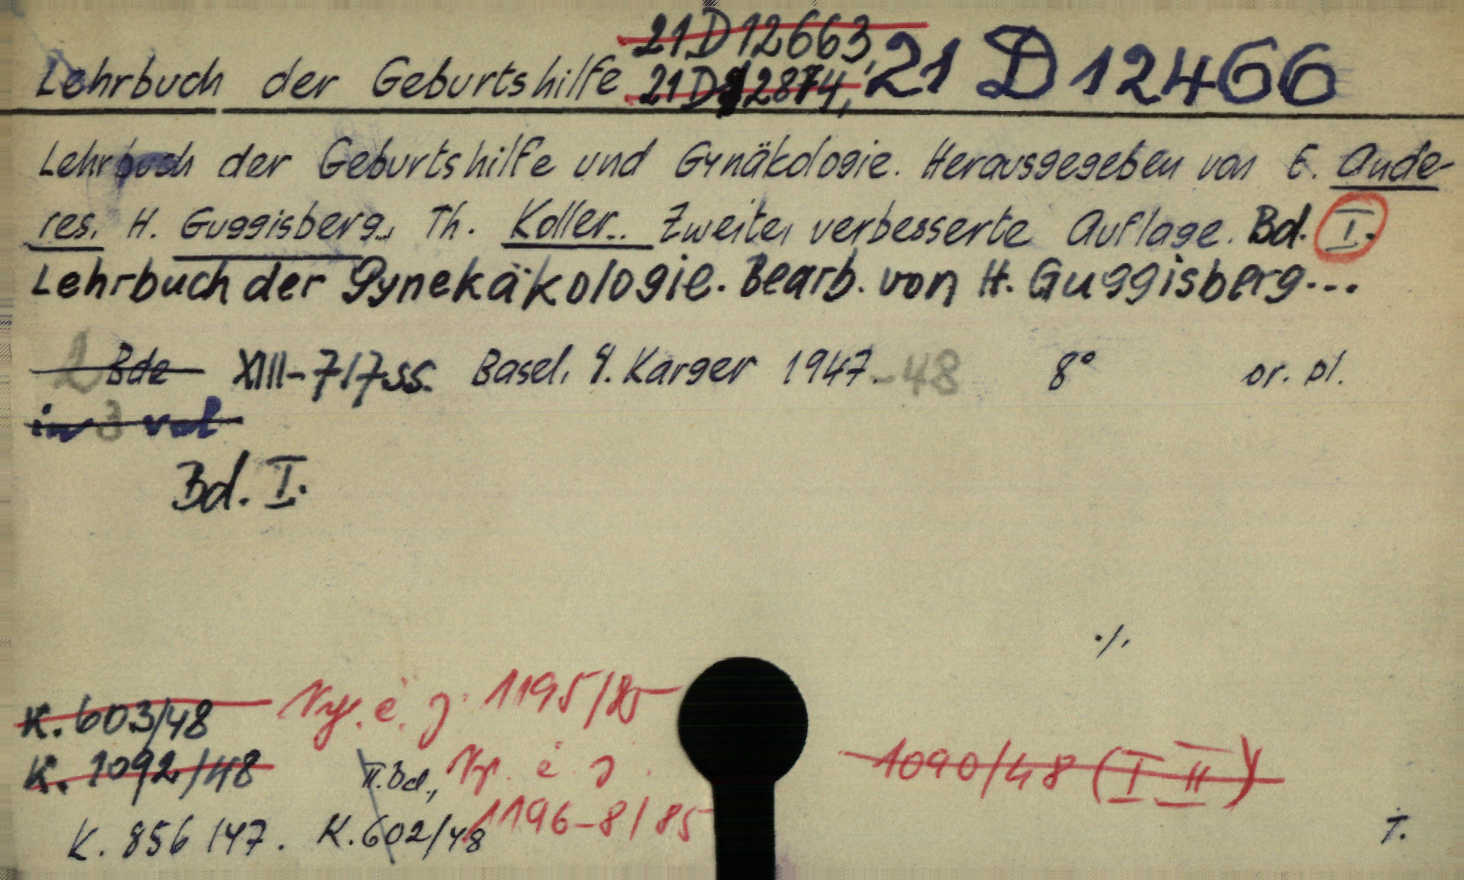 21D12663,
Lehrbuch der Geburtshilfe 21D12874, 21 D 12466
Lehrbuch der Geburtshilfe und Gynäkologie. Herausgegeben von E. Ande-
res. H. Guggisberg., Th. Koller.. Zweite, verbesserte Auflage. Bd. I.
Lehrbuch der Gynekäkologie. Bearb. von H. Guggisberg...
2 Bde XIII-717 ss. Basel, S. Karger 1947.-48 8° or. pl.
in 3 vol
Bd. I.
./.
K. 603/48 Vyř. č. j. 1195/85
K. 1092/48 II. Bd., Vyř. č. j. 1090/48 (I II)
K. 856/47. K. 602/48 1196-8/85 T.